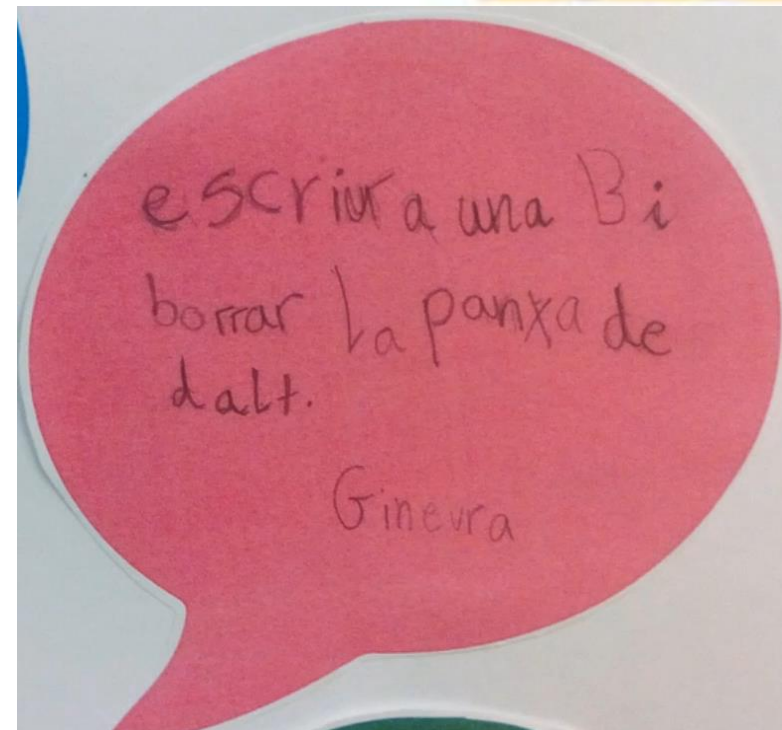 escriura una B i
borrar la panxa de
dalt.
Ginevra